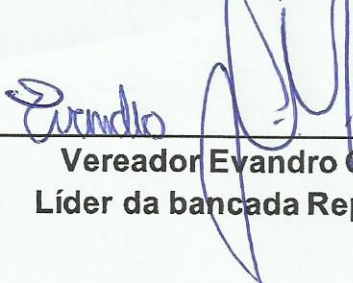 Evandro
Vereador Evandro
Líder da bancada Rep